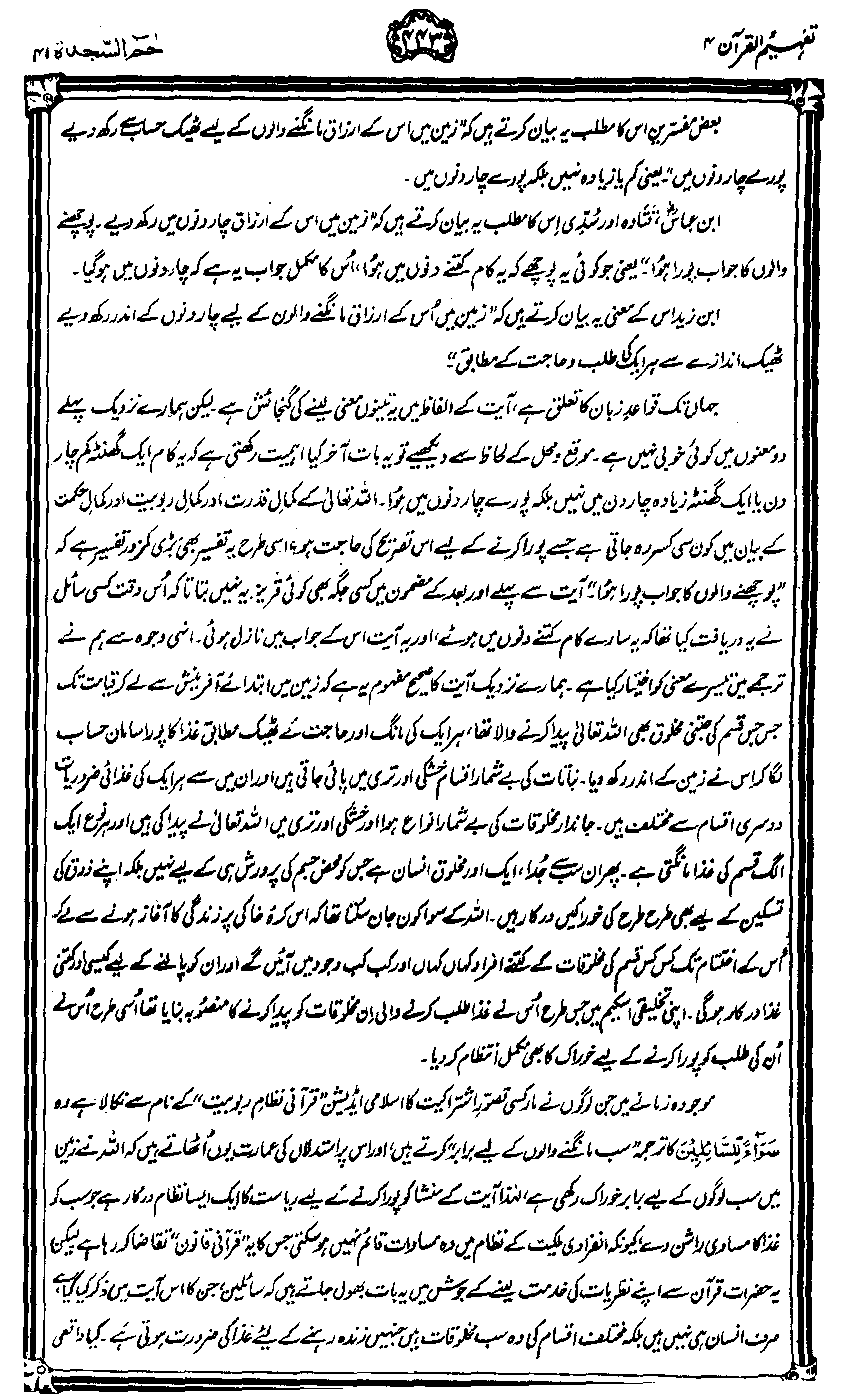 تفہیم القرآن ۴
۴۴۳
حٰمٓ السّجدۃ ۴۱
بعض مفسّرین اس کا مطلب یہ بیان کرتے ہیں کہ "زمین میں اس کے ارزاق مانگنے والوں کے لیے ٹھیک حساب سے رکھ دیے
پورے چار دنوں میں"۔ یعنی کم یا زیادہ نہیں بلکہ پورے چار دنوں میں۔
ابن عباسؓ، قتادہ اور سُدّی اِس کا مطلب یہ بیان کرتے ہیں کہ "زمین میں اس کے ارزاق چار دنوں میں رکھ دیے۔ پوچھنے
والوں کا جواب پورا ہوا"۔ یعنی جو کوئی یہ پوچھے کہ یہ کام کتنے دنوں میں ہوا، اُس کا مکمل جواب یہ ہے کہ چار دنوں میں ہو گیا۔
ابن زید اس کے معنی یہ بیان کرتے ہیں کہ "زمین میں اُس کے ارزاق مانگنے والوں کے لیے چار دنوں کے اندر رکھ دیے
ٹھیک اندازے سے ہر ایک کی طلب و حاجت کے مطابق"
جہاں تک قواعدِ زبان کا تعلق ہے، آیت کے الفاظ میں یہ تینوں معنی لینے کی گنجائش ہے۔ لیکن ہمارے نزدیک پہلے
دو معنوں میں کوئی خوبی نہیں ہے۔ موقع و محل کے لحاظ سے دیکھیے تو یہ بات آخر کیا اہمیت رکھتی ہے کہ یہ کام ایک گھنٹہ کم چار
دن یا ایک گھنٹہ زیادہ چار دن میں نہیں بلکہ پورے چار دنوں میں ہوا۔ اللہ تعالیٰ کے کمالِ قدرت اور کمالِ ربوبیت اور کمالِ حکمت
کے بیان میں کون سی کسر رہ جاتی ہے جسے پورا کرنے کے لیے اس تصریح کی حاجت ہو؟ اسی طرح یہ تفسیر بھی بڑی کمزور تفسیر ہے کہ
"پوچھنے والوں کا جواب پورا ہوا"۔ آیت سے پہلے اور بعد کے مضمون میں کسی جگہ بھی کوئی قرینہ یہ نہیں بتاتا کہ اُس وقت کسی سائل
نے یہ دریافت کیا تھا کہ یہ سارے کام کتنے دنوں میں ہوئے، اور یہ آیت اس کے جواب میں نازل ہوئی۔ انہی وجوہ سے ہم نے
ترجمے میں تیسرے معنی کو اختیار کیا ہے۔ ہمارے نزدیک آیت کا صحیح مفہوم یہ ہے کہ زمین میں ابتدائے آفرینش سے لے کر قیامت تک
جس جس قسم کی جتنی مخلوق بھی اللہ تعالیٰ پیدا کرنے والا تھا، ہر ایک کی مانگ اور حاجت کے ٹھیک مطابق غذا کا پورا سامان حساب
لگا کر اس نے زمین کے اندر رکھ دیا۔ نباتات کی بے شمار اقسام خشکی اور تری میں پائی جاتی ہیں اور ان میں سے ہر ایک کی غذائی ضروریات
دوسری اقسام سے مختلف ہیں۔ جاندار مخلوقات کی بے شمار انواع ہوا اور خشکی اور تری میں اللہ تعالیٰ نے پیدا کی ہیں اور ہر نوع ایک
الگ قسم کی غذا مانگتی ہے۔ پھر ان سب سے جُدا، ایک اور مخلوق انسان ہے جس کو محض جسم کی پرورش ہی کے لیے نہیں بلکہ اپنے ذوق کی
تسکین کے لیے بھی طرح طرح کی خوراکیں درکار ہیں۔ اللہ کے سوا کون جان سکتا تھا کہ اس کرۂ خاکی پر زندگی کا آغاز ہونے سے لے کر
اُس کے اختتام تک کس کس قسم کی مخلوقات کے کتنے افراد کہاں کہاں اور کب کب وجود میں آئیں گے اور ان کو پالنے کے لیے کیسی اور کتنی
غذا درکار ہوگی۔ اپنی تخلیقی اسکیم میں جس طرح اُس نے غذا طلب کرنے والی ان مخلوقات کو پیدا کرنے کا منصوبہ بنایا تھا اُسی طرح اُس نے
اُن کی طلب کو پورا کرنے کے لیے خوراک کا بھی مکمل انتظام کر دیا۔
موجودہ زمانے میں جن لوگوں نے مارکسی تصورِ اشتراکیت کا اسلامی ایڈیشن "قرآنی نظامِ ربوبیت" کے نام سے نکالا ہے وہ
سَوَآءً لِّلسَّآئِلِیْنَ کا ترجمہ "سب مانگنے والوں کے لیے برابر" کرتے ہیں، اور اس پر استدلال کی عمارت یوں اُٹھاتے ہیں کہ اللہ نے زمین
میں سب لوگوں کے لیے برابر خوراک رکھی ہے، لہٰذا آیت کے منشا کو پورا کرنے کے لیے ریاست کا ایک ایسا نظام درکار ہے جو سب کو
غذا کا مساوی راشن دے، کیونکہ انفرادی ملکیت کے نظام میں وہ مساوات قائم نہیں ہو سکتی جس کا یہ "قرآنی قانون" تقاضا کر رہا ہے لیکن
یہ حضرات قرآن سے اپنے نظریات کی خدمت لینے کے جوش میں یہ بات بھول جاتے ہیں کہ سائلین، جن کا اس آیت میں ذکر کیا گیا ہے،
صرف انسان ہی نہیں ہیں بلکہ مختلف اقسام کی وہ سب مخلوقات ہیں جنہیں زندہ رہنے کے لیے غذا کی ضرورت ہوتی ہے۔ کیا واقعی